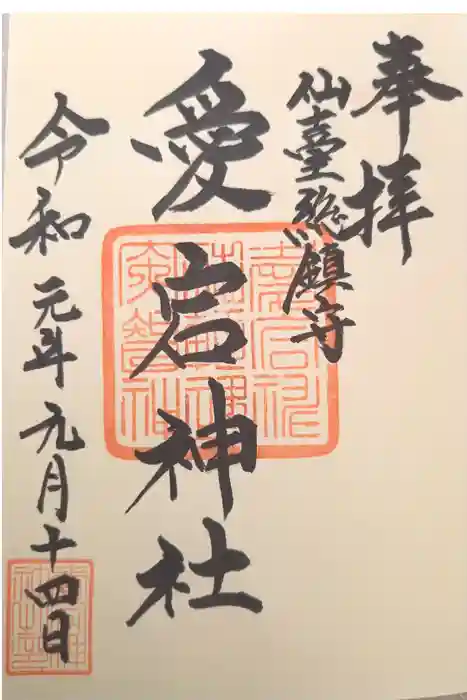 奉拝
仙臺総鎮守
愛宕神社
令和元年九月十四日